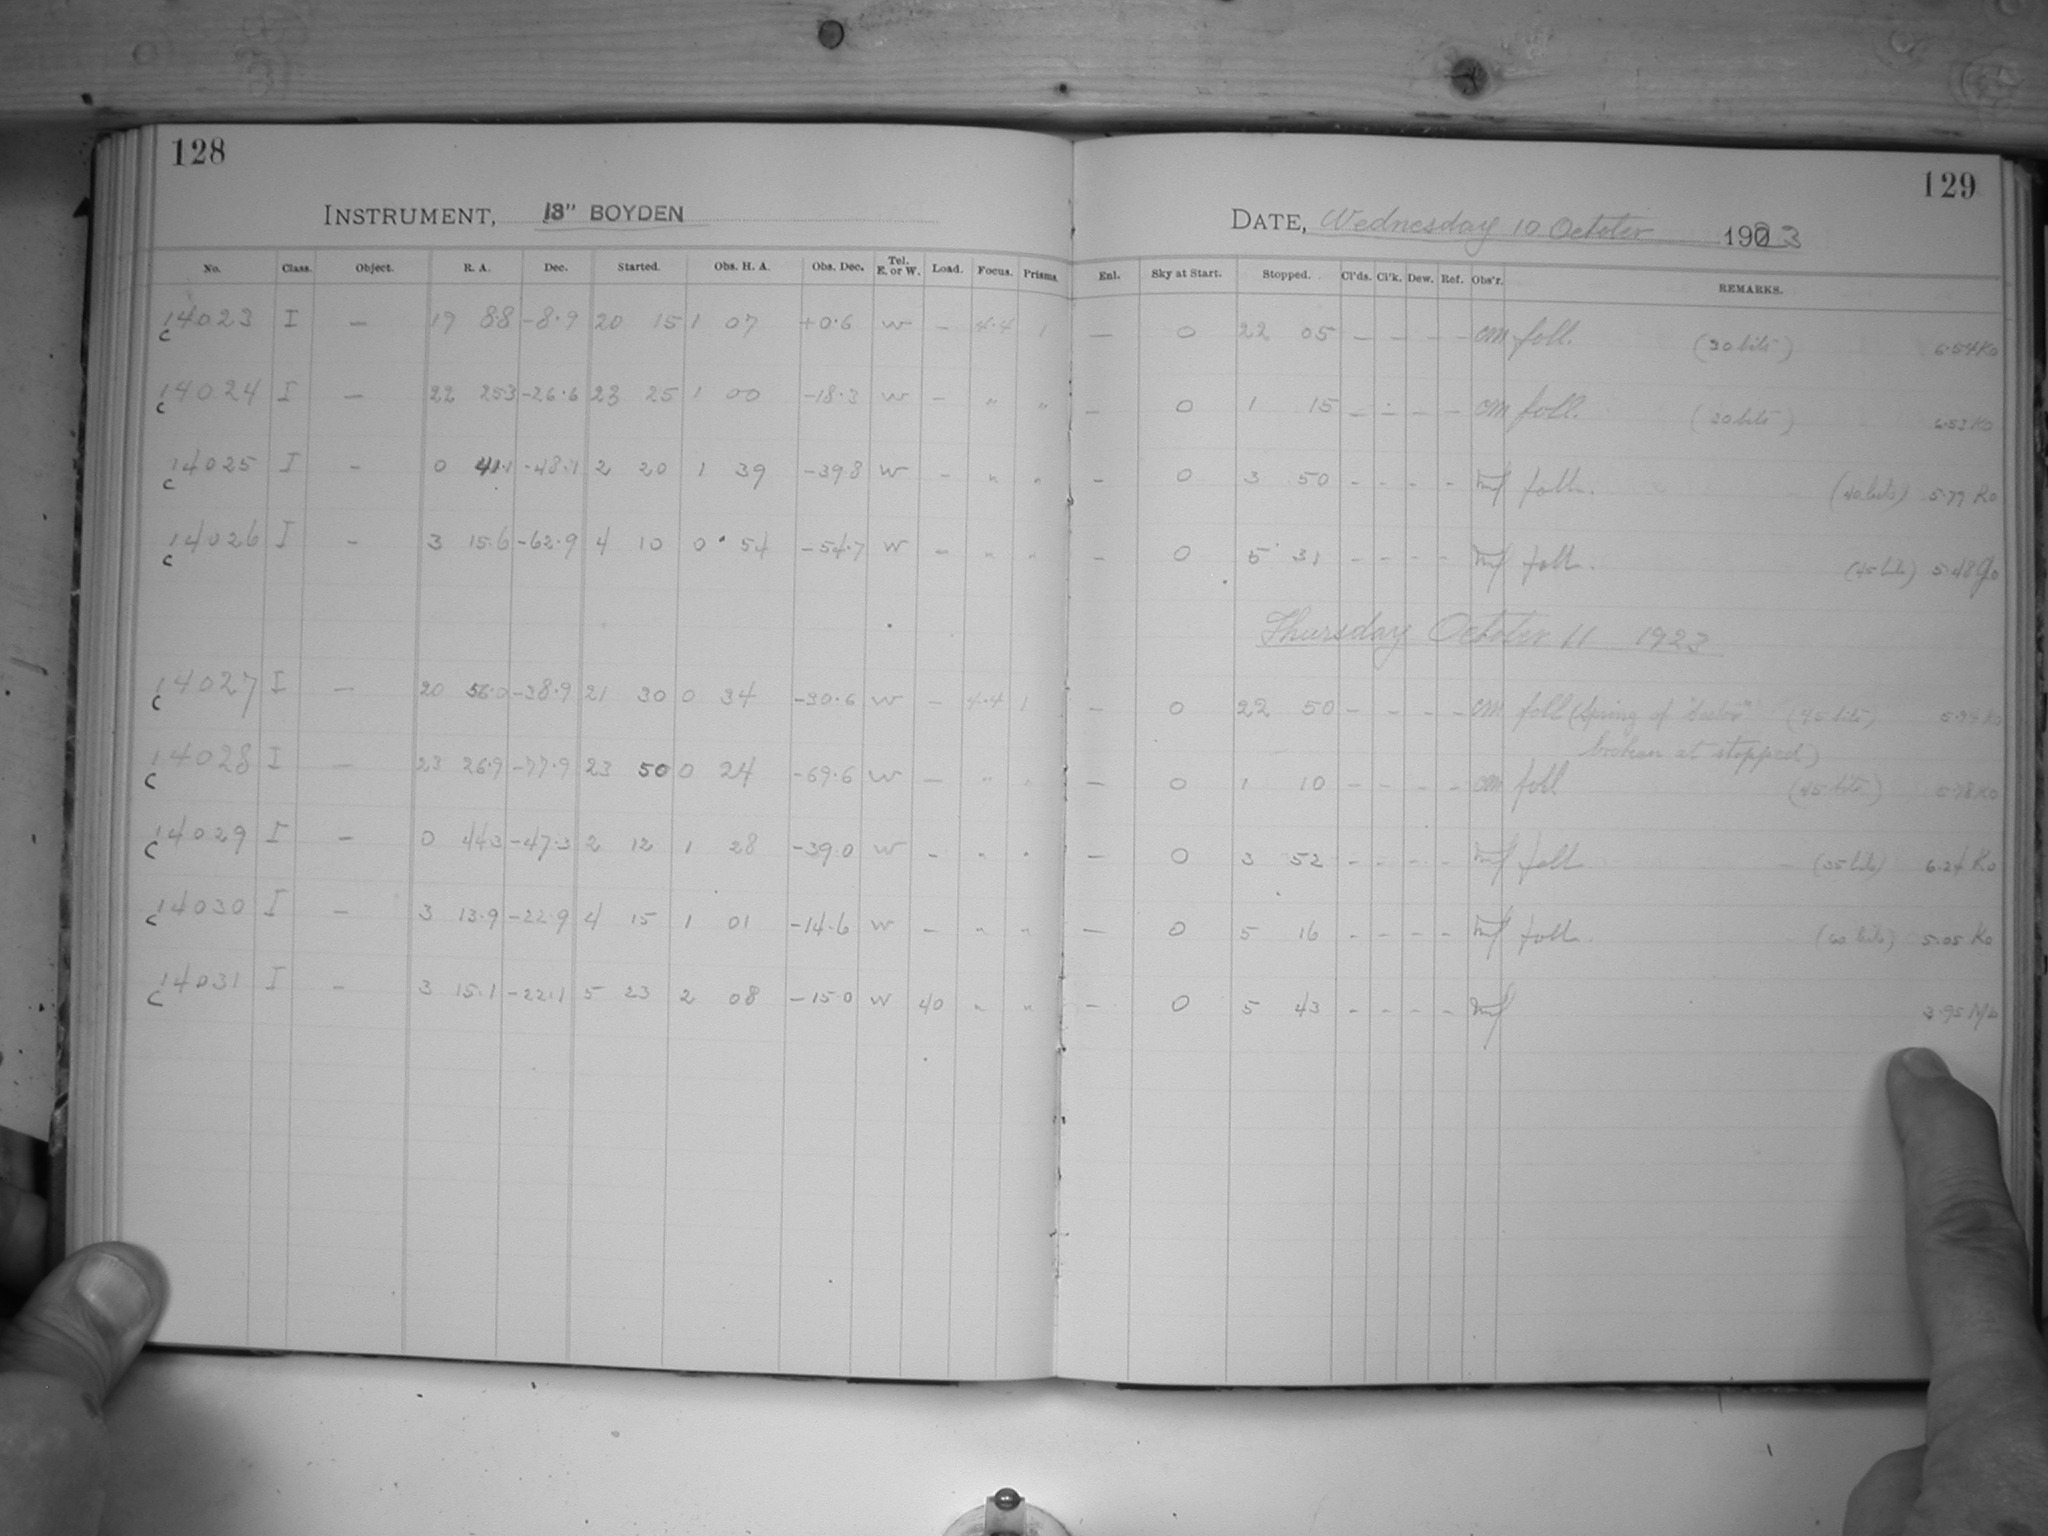 128
INSTRUMENT, 13" BOYDEN
No. Class. Object. R. A. Dec. Started. Obs. H. A. Obs. Dec. Tel. E. or W. Load. Focus. Prisms.
c 14023 I — 19 8.8 -8.9 20 15 1 07 +0.6 W - 4.4 1
c 14024 I — 22 25.3 -26.6 23 25 1 00 -18.3 W - " "
c 14025 I - 0 41.1 -48.1 2 20 1 39 -39.8 W - " "
c 14026 I - 3 15.6 -62.9 4 10 0 54 -54.7 W - " "
c 14027 I — 20 56.0 -38.9 21 30 0 34 -30.6 W - 4.4 1
c 14028 I — 23 26.9 -77.9 23 50 0 24 -69.6 W - " "
c 14029 I — 0 44.3 -47.3 2 12 1 28 -39.0 W - " "
c 14030 I - 3 13.9 -22.9 4 15 1 01 -14.6 W - " "
c 14031 I - 3 15.1 -22.1 5 23 2 08 -15.0 W 40 " "
129
DATE, Wednesday 10 October 1923
Enl. Sky at Start. Stopped. Cl'ds. Cl'k. Dew. Ref. Obs'r. REMARKS.
— 0 22 05 - - - - cm foll. (30 bits) 6.54 Ko
— 0 1 15 - - - - cm foll. (30 bits) 6.53 Ko
- 0 3 50 - - - - foll. (40 bits) 5.77 Ro
- 0 5 31 - - - - foll. (45 bits) 5.48 Go
Thursday October 11 1923
- 0 22 50 - - - - cm foll (Spring of (45 bits) 5.94 Ko
broken at stopped)
— 0 1 10 - - - - cm foll (45 bits) Ko
— 0 3 52 - - - - foll (35 bits) 6.24 Ko
— 0 5 16 - - - - foll. bits) 5.05 Ko
- 0 5 43 - - - - 3.95